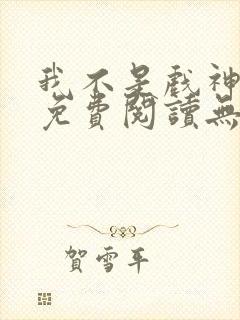 我不是戲神
免費閱讀無
賀雪平